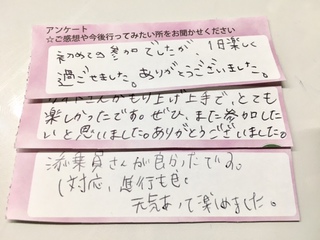 アンケート
☆ご感想や今後行ってみたい所をお聞かせください
初めての参加でしたが、1日楽しく
過ごせました。ありがとうございました。
ガイドさんがもり上げ上手で、とても
楽しかったです。ぜひ、また参加した
いと思いました。ありがとうございました。
添乗員さんが良かったです。
対応、進行も良く
元気あって楽しめました。